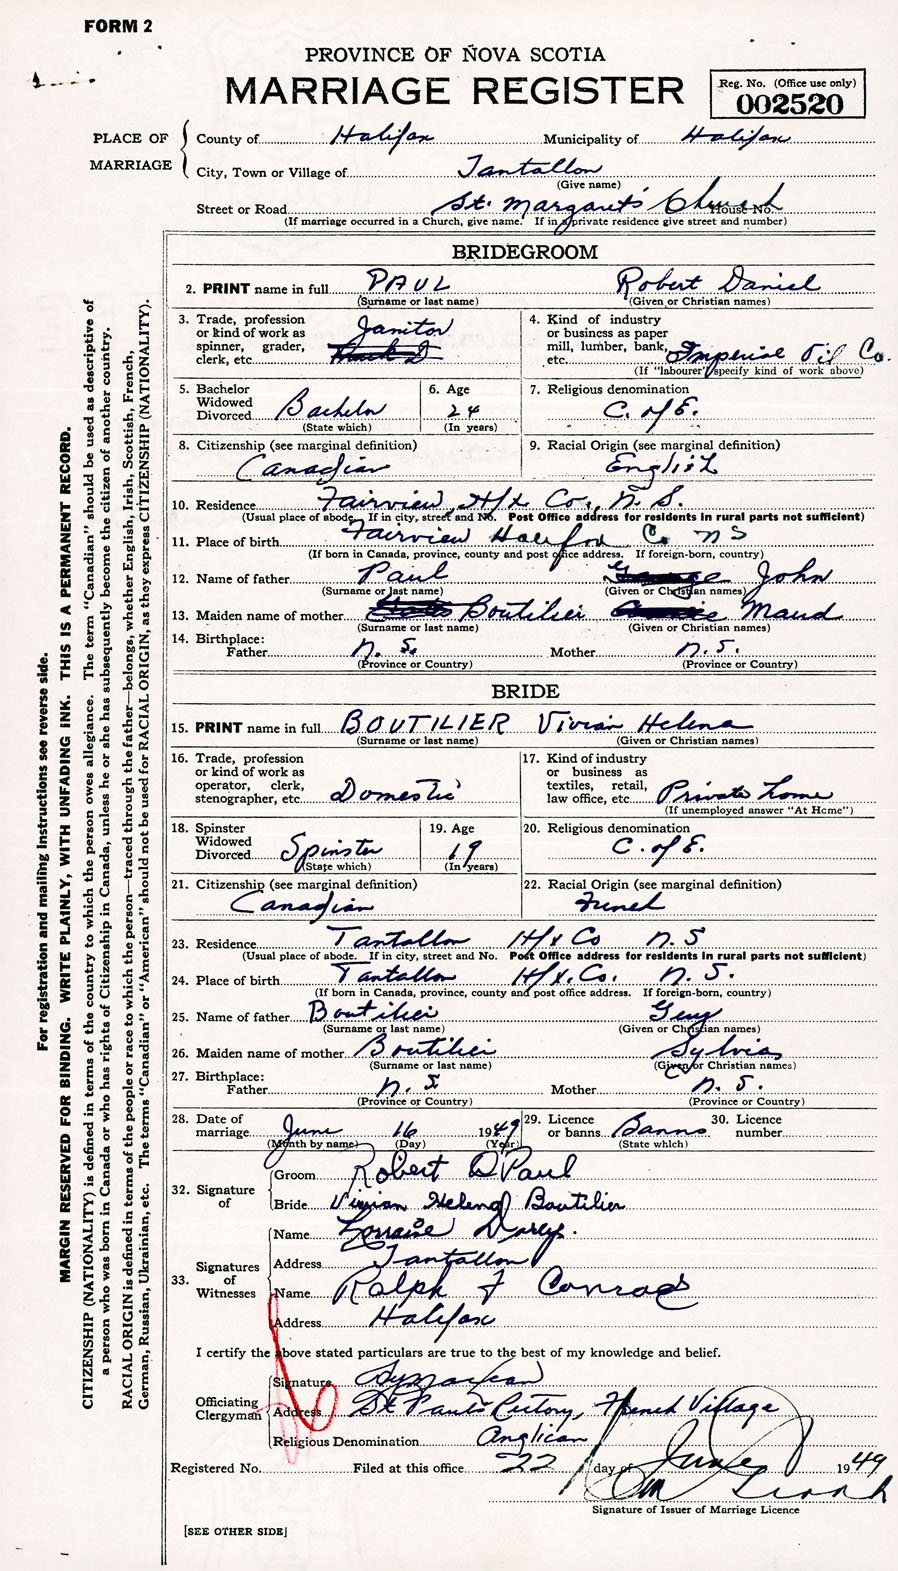 FORM 2
PROVINCE OF NOVA SCOTIA
MARRIAGE REGISTER
Reg. No. (Office use only)
002520
PLACE OF MARRIAGE
County of Halifax Municipality of Halifax
City, Town or Village of Tantallon
(Give name)
Street or Road St. Margaret's Church House No.
(If marriage occurred in a Church, give name. If in a private residence give street and number)
BRIDEGROOM
2. PRINT name in full PAUL Robert Daniel
(Surname or last name) (Given or Christian names)
3. Trade, profession or kind of work as spinner, grader, clerk, etc. Janitor
4. Kind of industry or business as paper mill, lumber, bank, etc. Imperial Oil Co.
(If "labourer" specify kind of work above)
5. Bachelor Widowed Divorced Bachelor
(State which)
6. Age 24
(In years)
7. Religious denomination
C. of E.
8. Citizenship (see marginal definition)
Canadian
9. Racial Origin (see marginal definition)
English
10. Residence Fairview, Hfx Co., N. S.
(Usual place of abode. If in city, street and No. Post Office address for residents in rural parts not sufficient)
11. Place of birth Fairview Halifax Co NS
(If born in Canada, province, county and post office address. If foreign-born, country)
12. Name of father Paul George John
(Surname or last name) (Given or Christian names)
13. Maiden name of mother Boutilier Maud
(Surname or last name) (Given or Christian names)
14. Birthplace:
Father N. S. Mother N. S.
(Province or Country) (Province or Country)
BRIDE
15. PRINT name in full BOUTILIER Vivian Helena
(Surname or last name) (Given or Christian names)
16. Trade, profession or kind of work as operator, clerk, stenographer, etc. Domestic
17. Kind of industry or business as textiles, retail, law office, etc. Private home
(If unemployed answer "At Home")
18. Spinster Widowed Divorced Spinster
(State which)
19. Age 19
(In years)
20. Religious denomination
C. of E.
21. Citizenship (see marginal definition)
Canadian
22. Racial Origin (see marginal definition)
French
23. Residence Tantallon Hfx Co N. S
(Usual place of abode. If in city, street and No. Post Office address for residents in rural parts not sufficient)
24. Place of birth Tantallon Hfx. Co. N. S.
(If born in Canada, province, county and post office address. If foreign-born, country)
25. Name of father Boutilier
(Surname or last name) (Given or Christian names)
26. Maiden name of mother Boutilier Sylvia
(Surname or last name) (Given or Christian names)
27. Birthplace:
Father N. S Mother N. S.
(Province or Country) (Province or Country)
28. Date of marriage June 16 1949
(Month by name) (Day) (Year)
29. Licence or banns Banns
(State which)
30. Licence number
32. Signature of
Groom Robert D Paul
Bride Vivian Helena Boutilier
33. Signatures of Witnesses
Name Lorraine
Address Tantallon
Name Ralph F Conrad
Address Halifax
I certify the above stated particulars are true to the best of my knowledge and belief.
Officiating Clergyman
Signature
Address St Paul's Rectory, French Village
Religious Denomination Anglican
Registered No. Filed at this office 22 day of June 1949
Signature of Issuer of Marriage Licence
[SEE OTHER SIDE]
For registration and mailing instructions see reverse side.
MARGIN RESERVED FOR BINDING. WRITE PLAINLY, WITH UNFADING INK. THIS IS A PERMANENT RECORD.
CITIZENSHIP (NATIONALITY) is defined in terms of the country to which the person owes allegiance. The term "Canadian" should be used as descriptive of
a person who was born in Canada or who has rights of Citizenship in Canada, unless he or she has subsequently become the citizen of another country.
RACIAL ORIGIN is defined in terms of the people or race to which the person—traced through the father—belongs, whether English, Irish, Scottish, French,
German, Russian, Ukrainian, etc. The terms "Canadian" or "American" should not be used for RACIAL ORIGIN, as they express CITIZENSHIP (NATIONALITY).